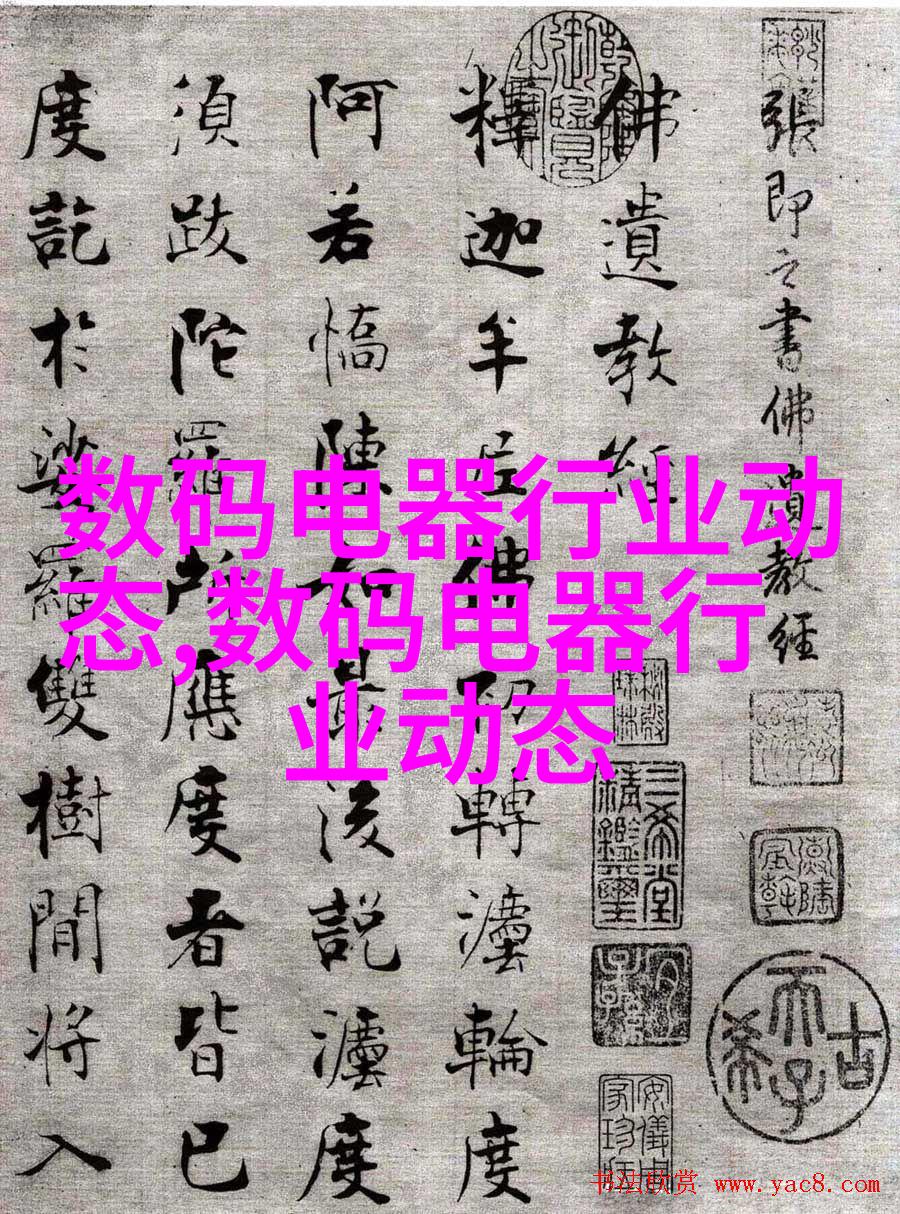 張即之書佛遺教經
佛遺教經
釋迦牟尼佛初轉灋輪度
阿若憍陳如最後說灋度
須跋陀羅所應度者皆已
度訖於娑羅雙樹間將入
数码电器行业动
态,数码电器行
业动态
三希堂精鑑璽
古希天子
書法欣赏 www.yac8.com